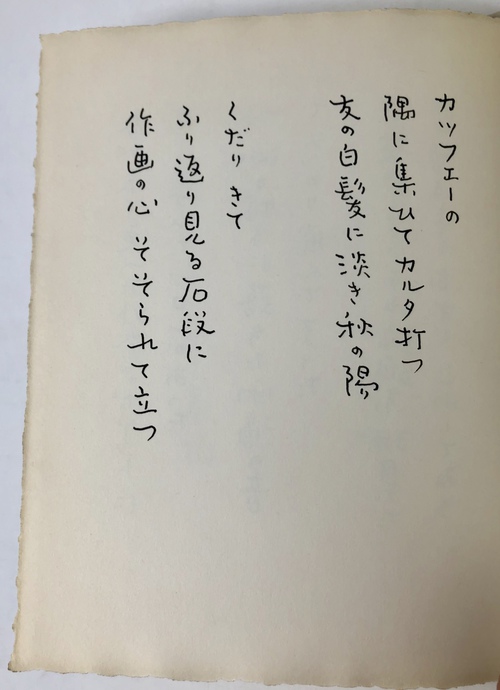 カツフエーの
隅に集ひてカルタ打つ
友の白髪に淡き秋の陽
くだりきて
ふり返り見る石段に
作画の心そそられて立つ